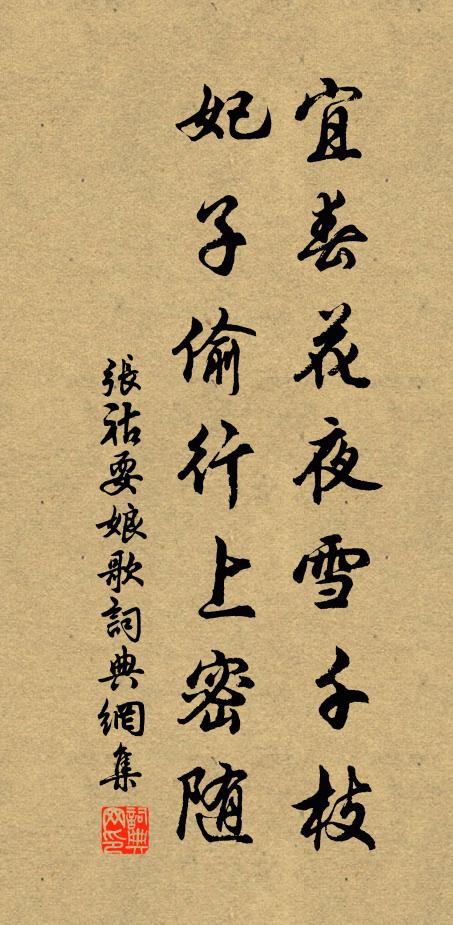 宜春花夜雪千枝
妃子偷行上密随
張祜耍娘歌詞典網集
詞典网印